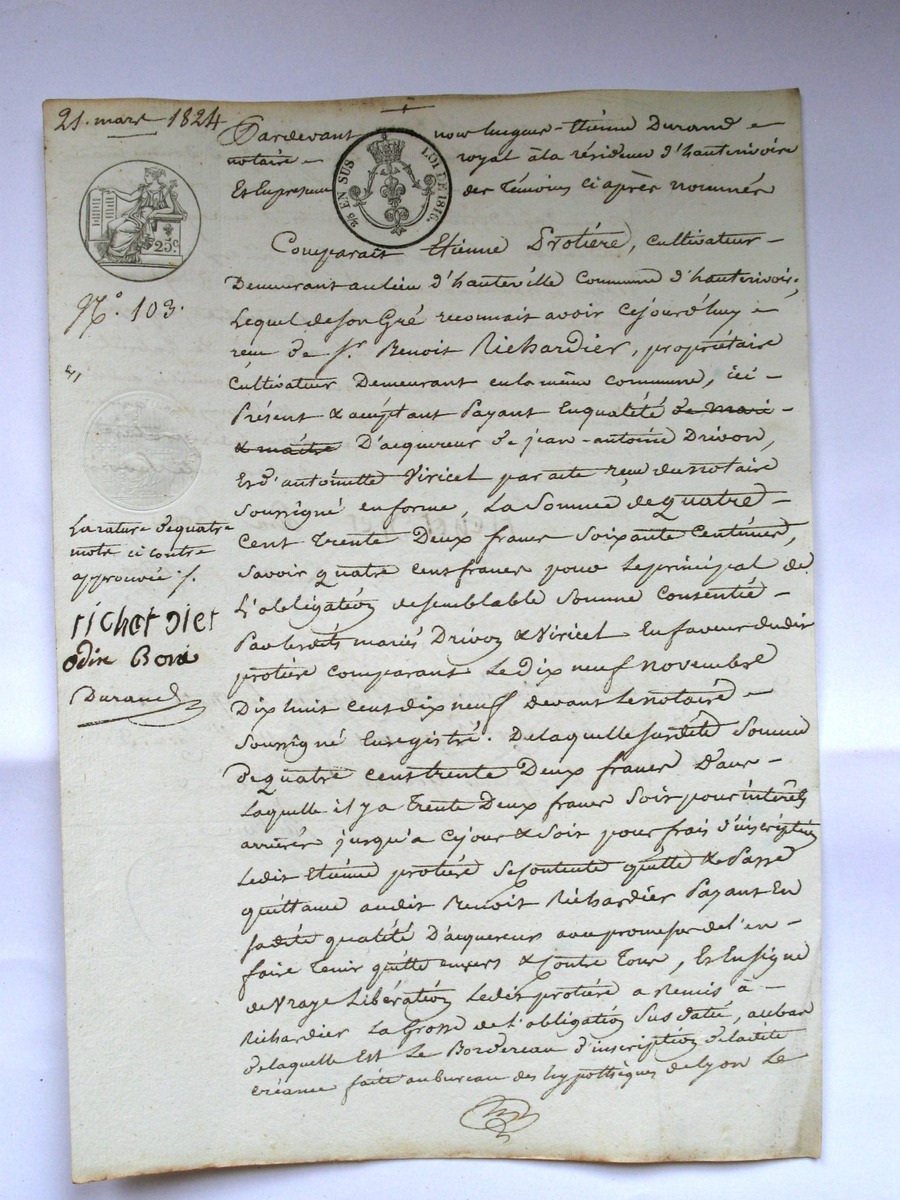 21. mars 1824
Pardevant nous hugues-Etiéne Durand
notaire royal à la résidence d'hauterivoire
Et En presence des témoins ci après nommés
2/5 EN SUS LOI DE 1816.
25c.
Comparait Etiéne Protiére, cultivateur
Demeurant au lieu d'hauteville commune d'hauterivoire,
N.° 103.
Lequel de son Gré reconnait avoir cejourd'huy
reçu de Sr. Benoit Richardier, propriétaire
Cultivateur Demeurant en la même commune, ici
Présent & acceptant Payant En qualité de mari
& maitre D'acquereur de jean-antoine Drivon,
Et d'antoinette Viricel par acte reçu du notaire
Soussigné en forme, La Somme de quatre
Cent Trente Deux francs Soixante Centimes,
Savoir quatre cent francs pour Le principal de
L'obligation de semblable Somme Consentie
Par lesdits mariés Drivon & Viricel En faveur dudit
protiére comparant Le Dix neuf novembre
Dix huit cent dix neuf devant Le notaire
Soussigné Enregistré. De laquelle susdite Somme
De quatre cens trente Deux francs Dans
Laquelle il y a Trente Deux francs Soit pour intérêts
arriérés jusqu'a cejour & Soit pour frais d'inscription
Ledit Etiéne protiére Se Contente quitte & Passe
quittance audit Benoit Richardier Payant En
sadite qualité D'acquereur avec promesse de l'en
faire Tenir quitte envers & Contre Tous, Et En Signe
de Vraye Libération Ledit protiére a Remis à
Richardier La Grosse de L'obligation Sus datée, au bas
de laquelle Est Le Bordereau d'inscription de ladite
créance faite au bureau des hypothèques de Lyon Le
La rature de quatre
mots ci contre
approuvée
richardier
odin Boni
Durand